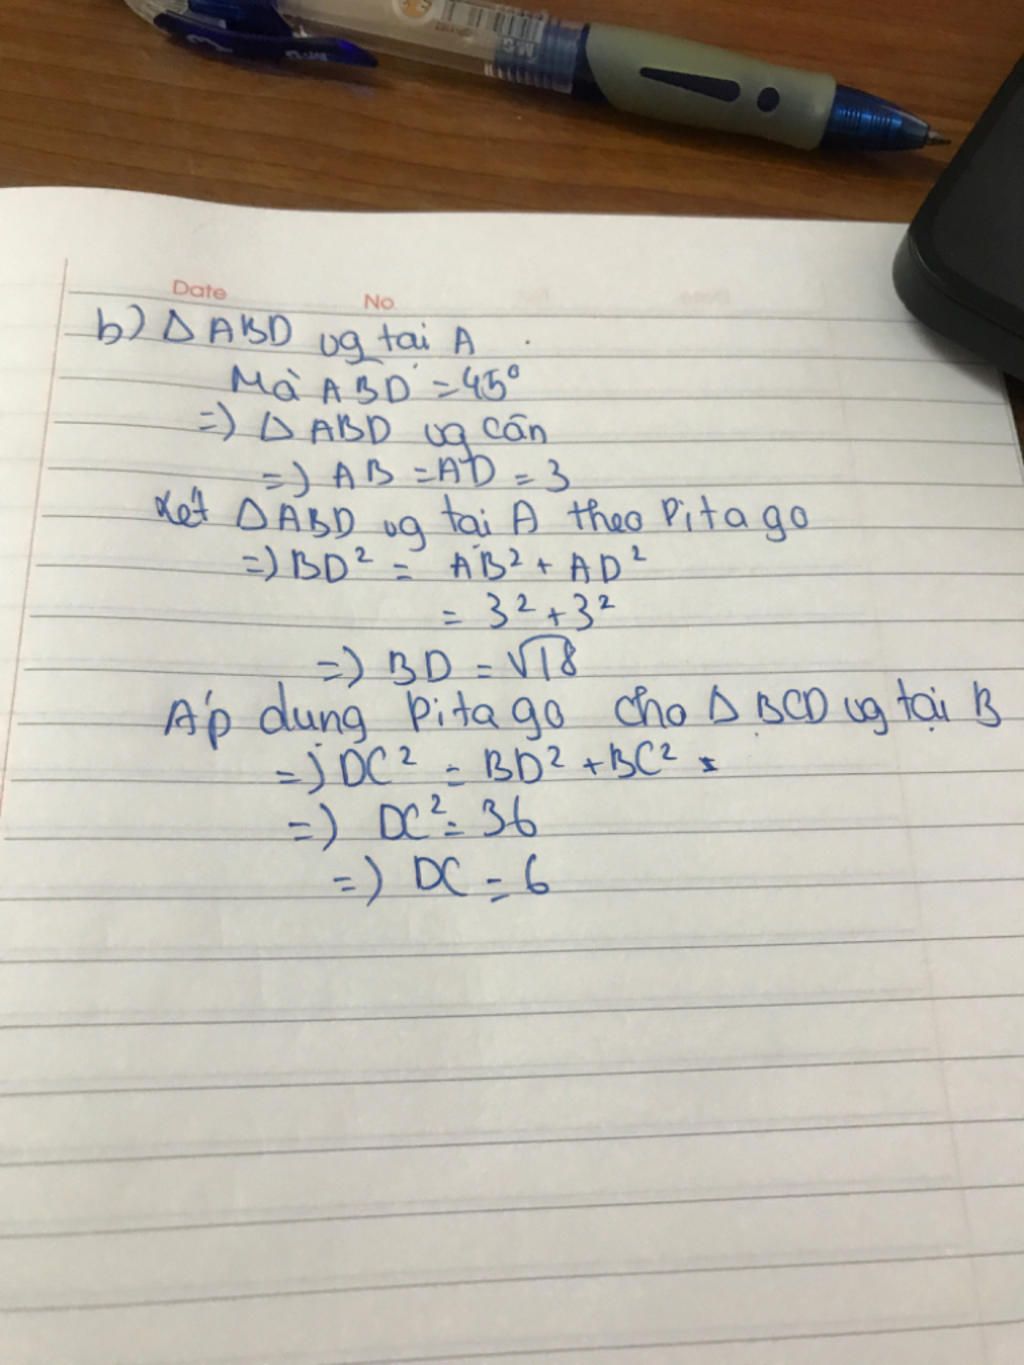 M&G
Date No
b) Δ ABD vg tai A
Mà ABD = 45°
=) Δ ABD vg cân
=) AB = AD = 3
xét Δ ABD vg tai A theo Pitago
=) BD² = AB² + AD²
= 3² + 3²
=) BD = √18
Áp dụng Pitago cho Δ BCD vg tại B
=) DC² = BD² + BC²
=) DC² = 36
=) DC = 6